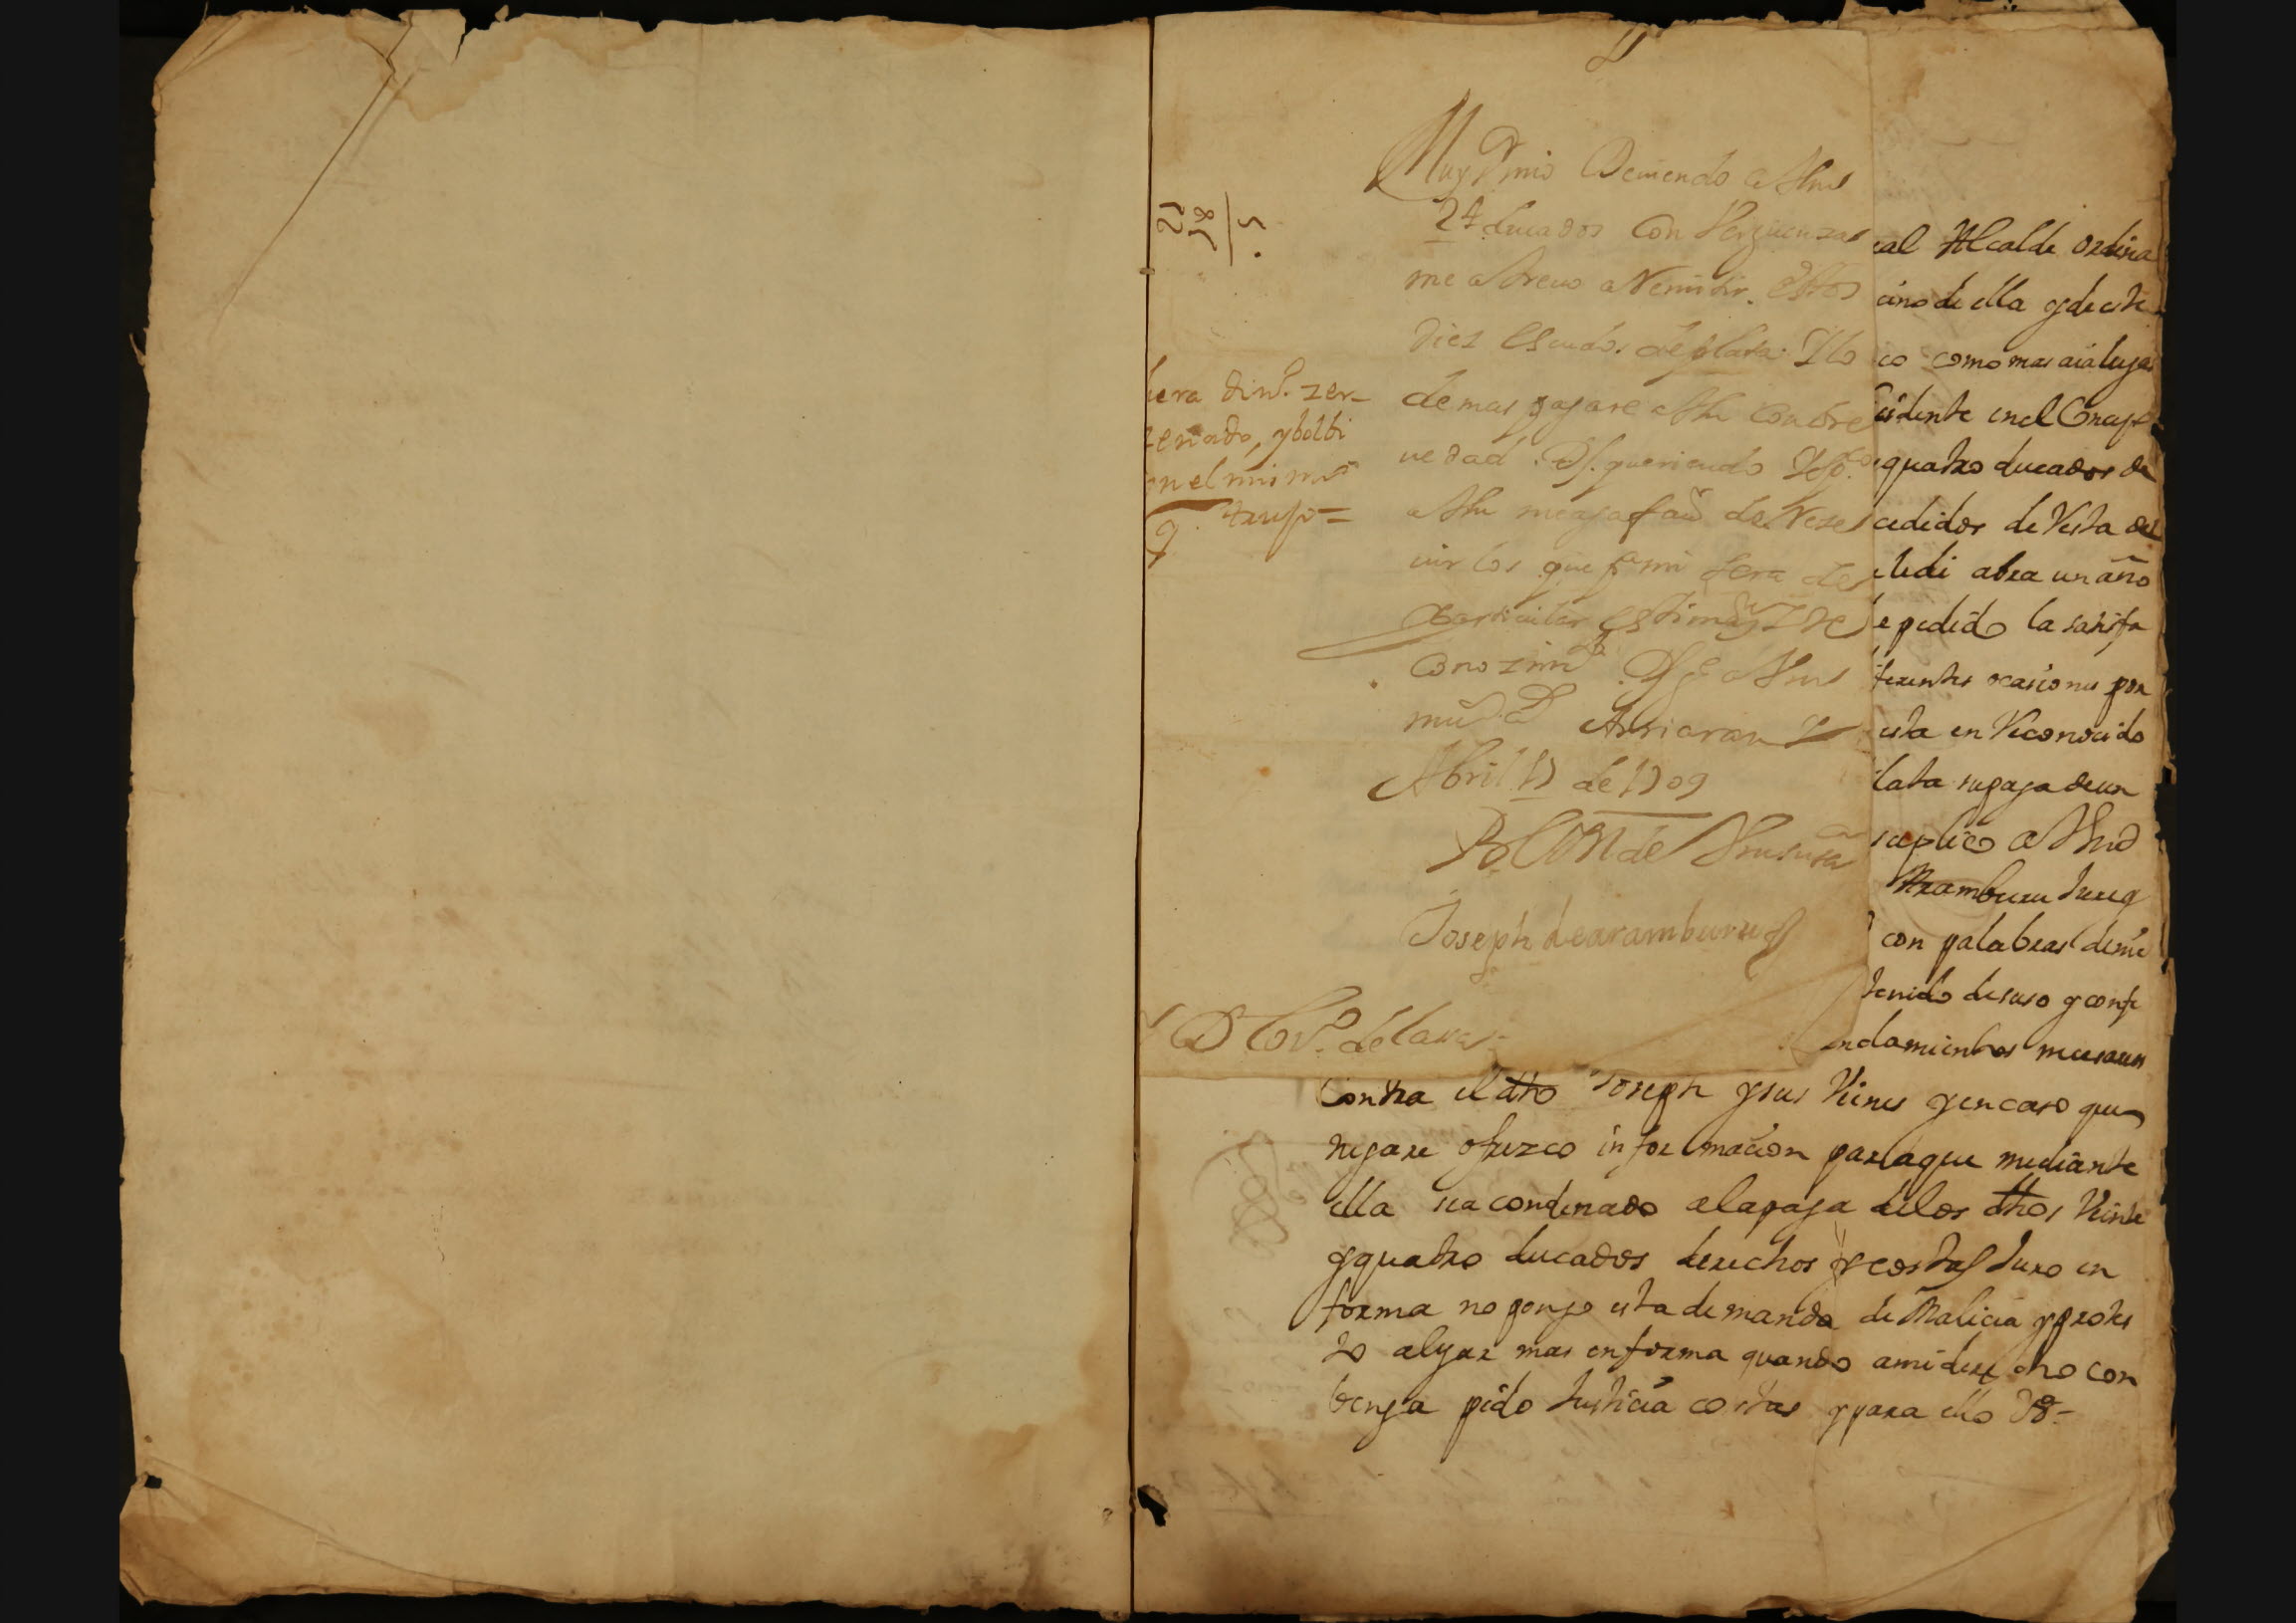 Muy Sr mio Deviendo a Vmd
24 ducados Con Verguenzas
me atrevo a Remitir. estos
diez escudos de plata. Y lo
demas pagare a Vm Con bre
vedad. queriendo
a Vm me aga favr de Reze
vir los que pa mi sera de
particular estimaon I Re
conozimto. De ge a Vmd
ms as Arriaran Y
Abril 17 de 1709
BLM de Vm su
Joseph de aramburu
Sr D
5
18
15
uera dino. zer-
zenado, y bolbi
en el mismo
trupo =
al Alcalde ordina
cino de ella y de este
co como mas aia lugar
sidente en el Conzeje
quatro ducados de
cedidos de Resta de
le di abra un año
e pedido la satisfa
ferentes ocasiones por
esta en Reconocido
lata su paga de un
suplico a Vmd
Aramburu Jure y
con palabras de nie
tenido de suso y confe
ndamientos nezesarios
Contra el dho Joseph y sus Vienes y en caso que
negare ofrezco informacion para que mediante
ella sea condenado a la paga de los dhos Veinte
y quatro ducados derechos y costas Juro en
forma no pongo esta demanda de Malicia y protes
to alegar mas en forma quando a mi derecho con
benga pido Justicia costas y para ello &-